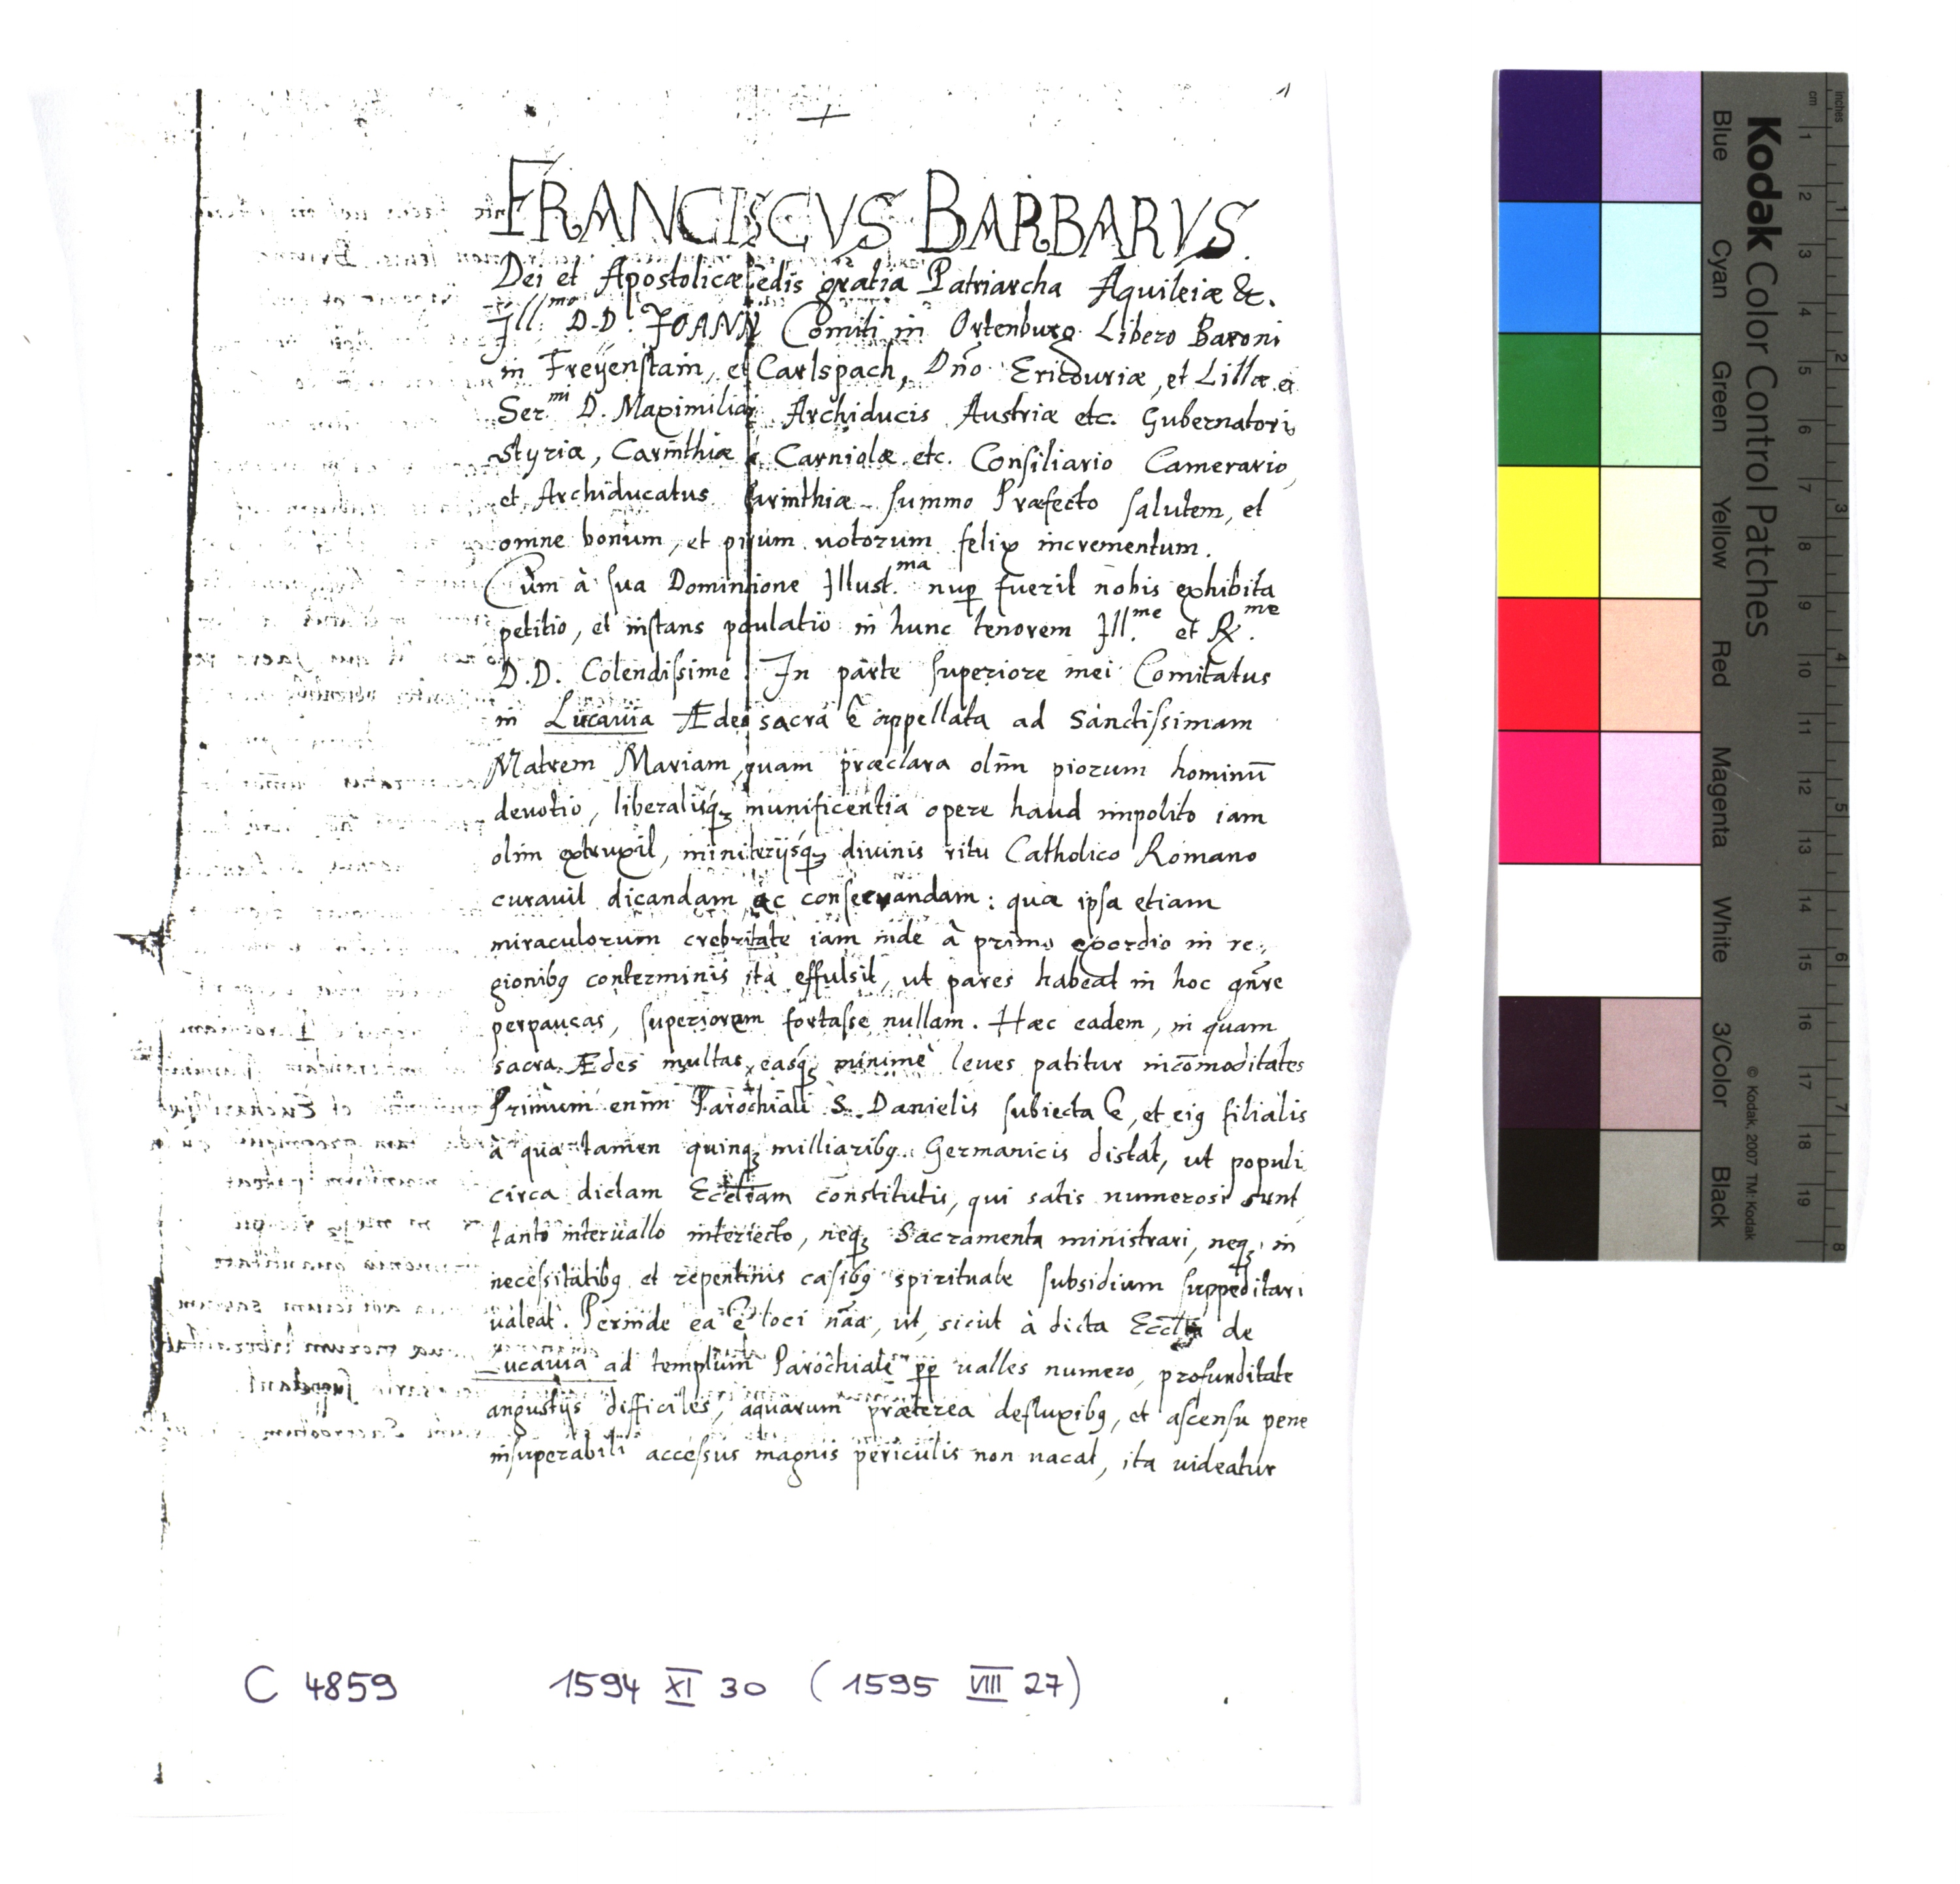 1
FRANCISCVS BARBARVS.
Dei et Apostolicæ sedis gratia Patriarcha Aquileiæ &c.
Ill:mo D.D. JOANN Comiti in Ortenburg Libero Baroni
in Freyenstain, et Carlspach, Dño Ericouriæ, et Lillæ. et
Ser.mi D. Maximiliai Archiducis Austriæ etc. Gubernatori
Styriæ, Carinthiæ Carniolæ etc. Consiliario Camerario,
et Archiducatus Carinthiæ summo Præfecto salutem, et
omne bonum, et piūm uotorum felix incrementum.
Cùm à sua Dominatione Illust.ma nup̱ fuerit nobis exhibita
petitio, et instans postulatio in hunc tenorem Ill.me et R.me
D.D. Colendissime. In parte superiore mei Comitatus
in Lucauia Ædes sacra ē appellata ad Sanctissimam
Matrem Mariam, quam præclara olim piorum hominū
deuotio, liberalisq; munificentia opere haud impolito iam
olim extruxit, ministerijsq; diuinis ritu Catholico Romano
curauit dicandam ac conseruandam: quæ ipsa etiam
miraculorum crebritate iam inde à primo exordio in re,,
gionibꝯ conterminis ita effulsit, ut pares habeat in hoc gñre
perpaucas, superiorem fortasse nullam. Hæc eadem, in quam
sacra Ædes multas, easq; minimè leues patitur incōmoditates
Primùm enim Parochiali S. Danielis subiecta ē, et eiꝯ filialis
à qua tamen quinq; milliaribꝯ Germanicis distat, ut populi
circa dictam Eccliam constitutis, qui satis numerosi sunt
tanto interuallo interiecto, neq; Sacramenta ministrari, neq; in
necessitatibꝯ et repentinis casibꝯ spirituale subsidium suppeditari
ualeat. Perinde ea ē loci nāa, ut, sicut à dicta Ecclia de
Lucauia ad templum Parochiale pp̱ ualles numero, profunditate
angustijs difficiles, aquarum præterea defluxibꝯ, et ascensu pene
insuperabili accessus magnis periculis non uacat, ita uideatur
C 4859 1594 XI 30 (1595 VIII 27)
Kodak Color Control Patches
Blue Cyan Green Yellow Red Magenta White 3/Color Black
© Kodak, 2007 TM: Kodak
inches 1 2 3 4 5 6 7 8
cm 1 2 3 4 5 6 7 8 9 10 11 12 13 14 15 16 17 18 19